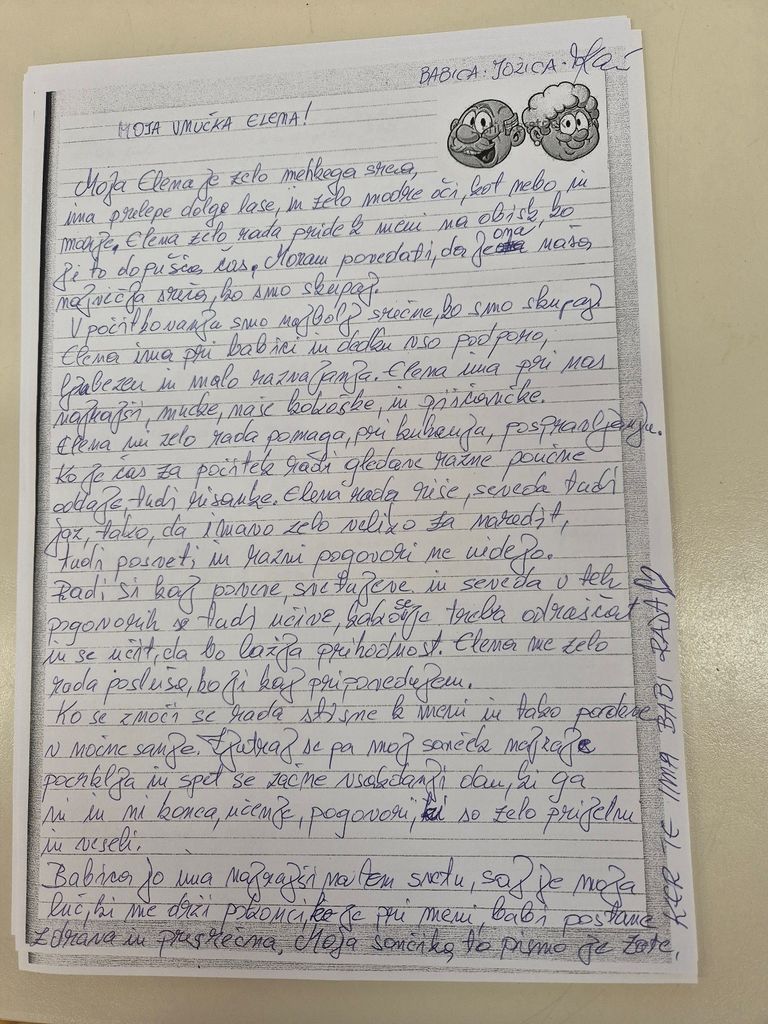 BABICA: JOŽICA
MOJA VNUČKA ELENA!
Moja Elena je zelo mehkega srca,
ima prelepe dolge lase, in zelo modre oči, kot nebo, in
morje. Elena zelo rada pride k meni na obisk, ko
ji to dopušča čas. Moram povedati, da je ona naša
največja sreča, ko smo skupaj.
V počitkovanju smo najbolj srečne, ko smo skupaj.
Elena ima pri babici in dedku vso podporo,
ljubezen in malo razvajanja. Elena ima pri nas
najrajši, mucke, naše kokoške, in piščančke.
Elena mi zelo rada pomaga, pri kuhanju, pospravljanju.
Ko je čas za počitek radi gledame razne poučne
oddaje, tudi risanke. Elena rada riše, seveda tudi
jaz, tako, da imavo zelo veliko za naredit,
tudi posveti, in razni pogovori ne uidejo.
Radi si kaj poveve, svetujeve in seveda v teh
pogovorih se tudi učive, kako se je treba odraščat
in se učit, da bo lažja prihodnost. Elena me zelo
rada posluša, ko ji kaj pripovedujem.
Ko se znoči se rada stisne k meni in tako potone
v nočne sanje. Zjutraj se pa moj sonček najraje
pocrklja in spet se začne vsakdanji dan, ki ga
ni in ni konca, učenje, pogovori, ki so zelo prijetni
in veseli.
Babica jo ima najrajši na tem svetu, saj je moja
luč, ki me drži pokonci, ko je pri meni, babi postane
zdrava in prisrčna. Moja sončica, to pismo je zate,
KER TE IMA BABI RADA